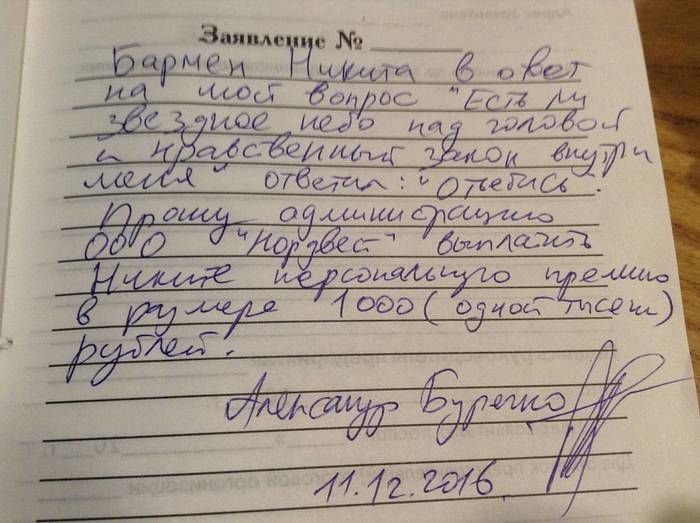 Заявление № 
Бармен Никита в овет
на мой вопрос "Есть ли
звездное небо над головой
и нравственный закон внутри
меня" ответил: "Отъебись".
Прошу администрацию
ООО "Нордвест" выплатить
Никите персональную премию
в размере 1000 (одной тысячи)
рублей.
Александр
11.12.2016